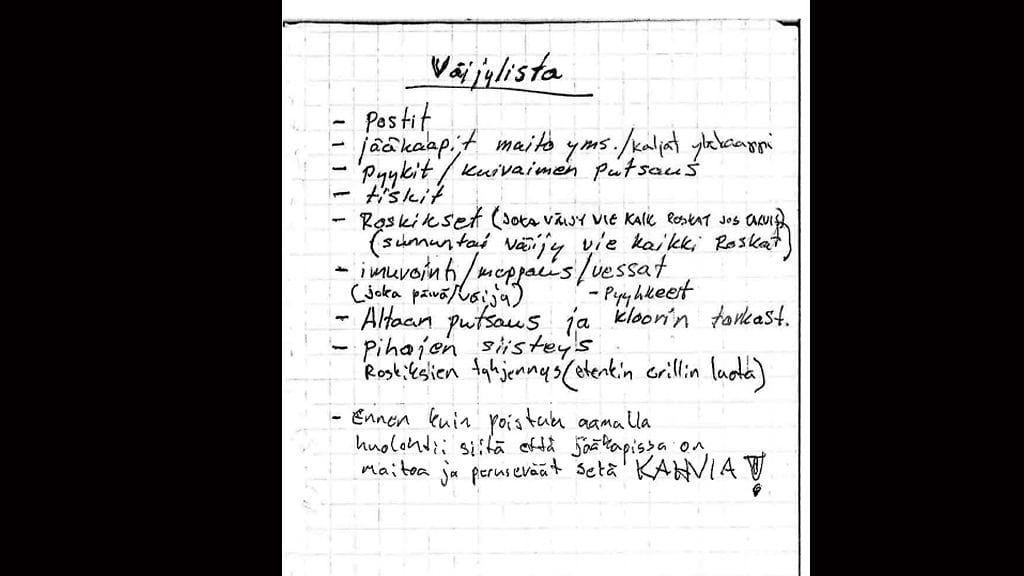 Väijylista
- Postit
- jääkaapit maito yms./kaljat ykkkaappi
- Pyykit / kuivaimen putsaus
- tiskit
- Roskikset (JOKA VÄIJY VIE KAIK ROSKAT JOS TARVIS)
(sunnuntai väijy vie kaikki Roskat)
- imuvointi/moppaus/vessat
(joka päivä/väijä) - Pyyhkeet
- Altaan putsaus ja kloorin tarkast.
- Pihojen siisteys
Roskiksien tyhjennys (etenkin grillin luota)
- Ennen kuin poistuu aamalla
huolehtii siitä että jääkapissa on
maitoa ja peruseväät setä KAHVIA!